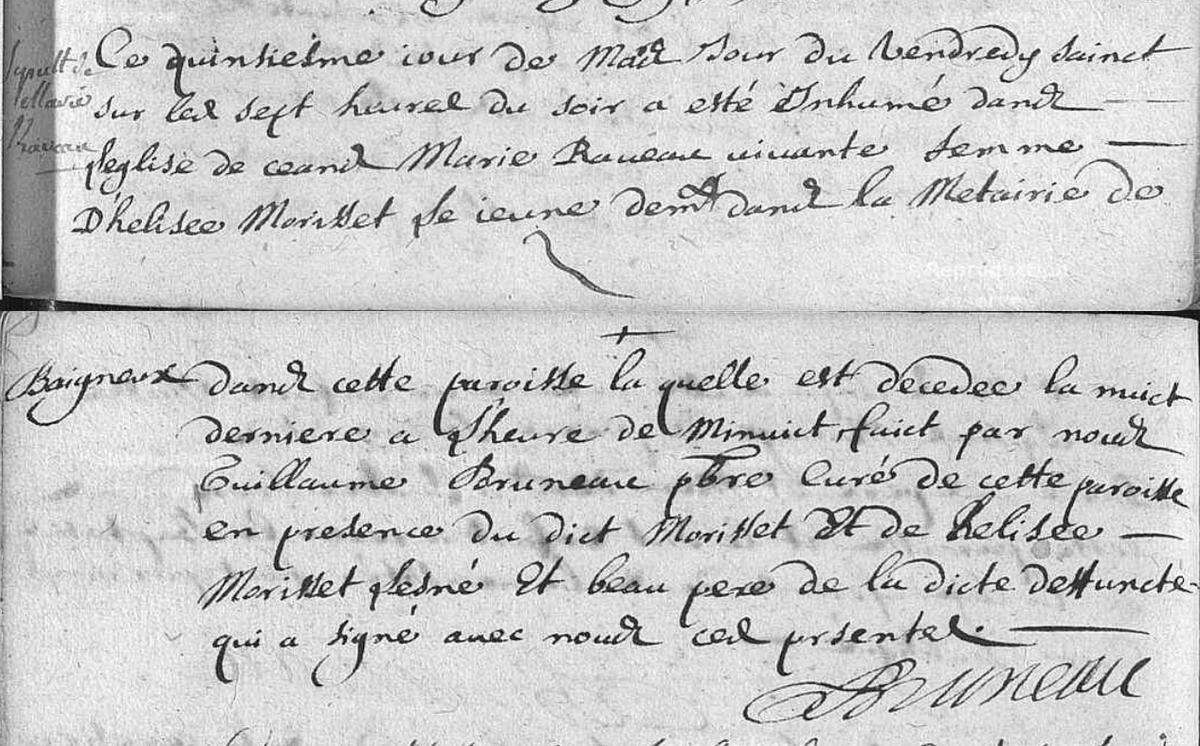 Sepult. de
Marie
Raveau
Ce quinsiesme iour de Mars Jour du Vendredy sainct
sur les sept heures du soir a esté Inhumé dans
l'eglise de ceans Marie Raveau vivante femme
D'helisee Morisset le ieune demt dans la Metairie de
Baigneux dans cette paroisse la quelle est decedee la nuict
derniere a l'heure de Minuict, faict par nous
Guillaume Bruneau pbre Curé de cette paroisse
en presence du dict Morisset Et de helisee
Morisset lesné Et beau pere de la dicte deffuncte
qui a signé avec nous ces prsentes.
Bruneau